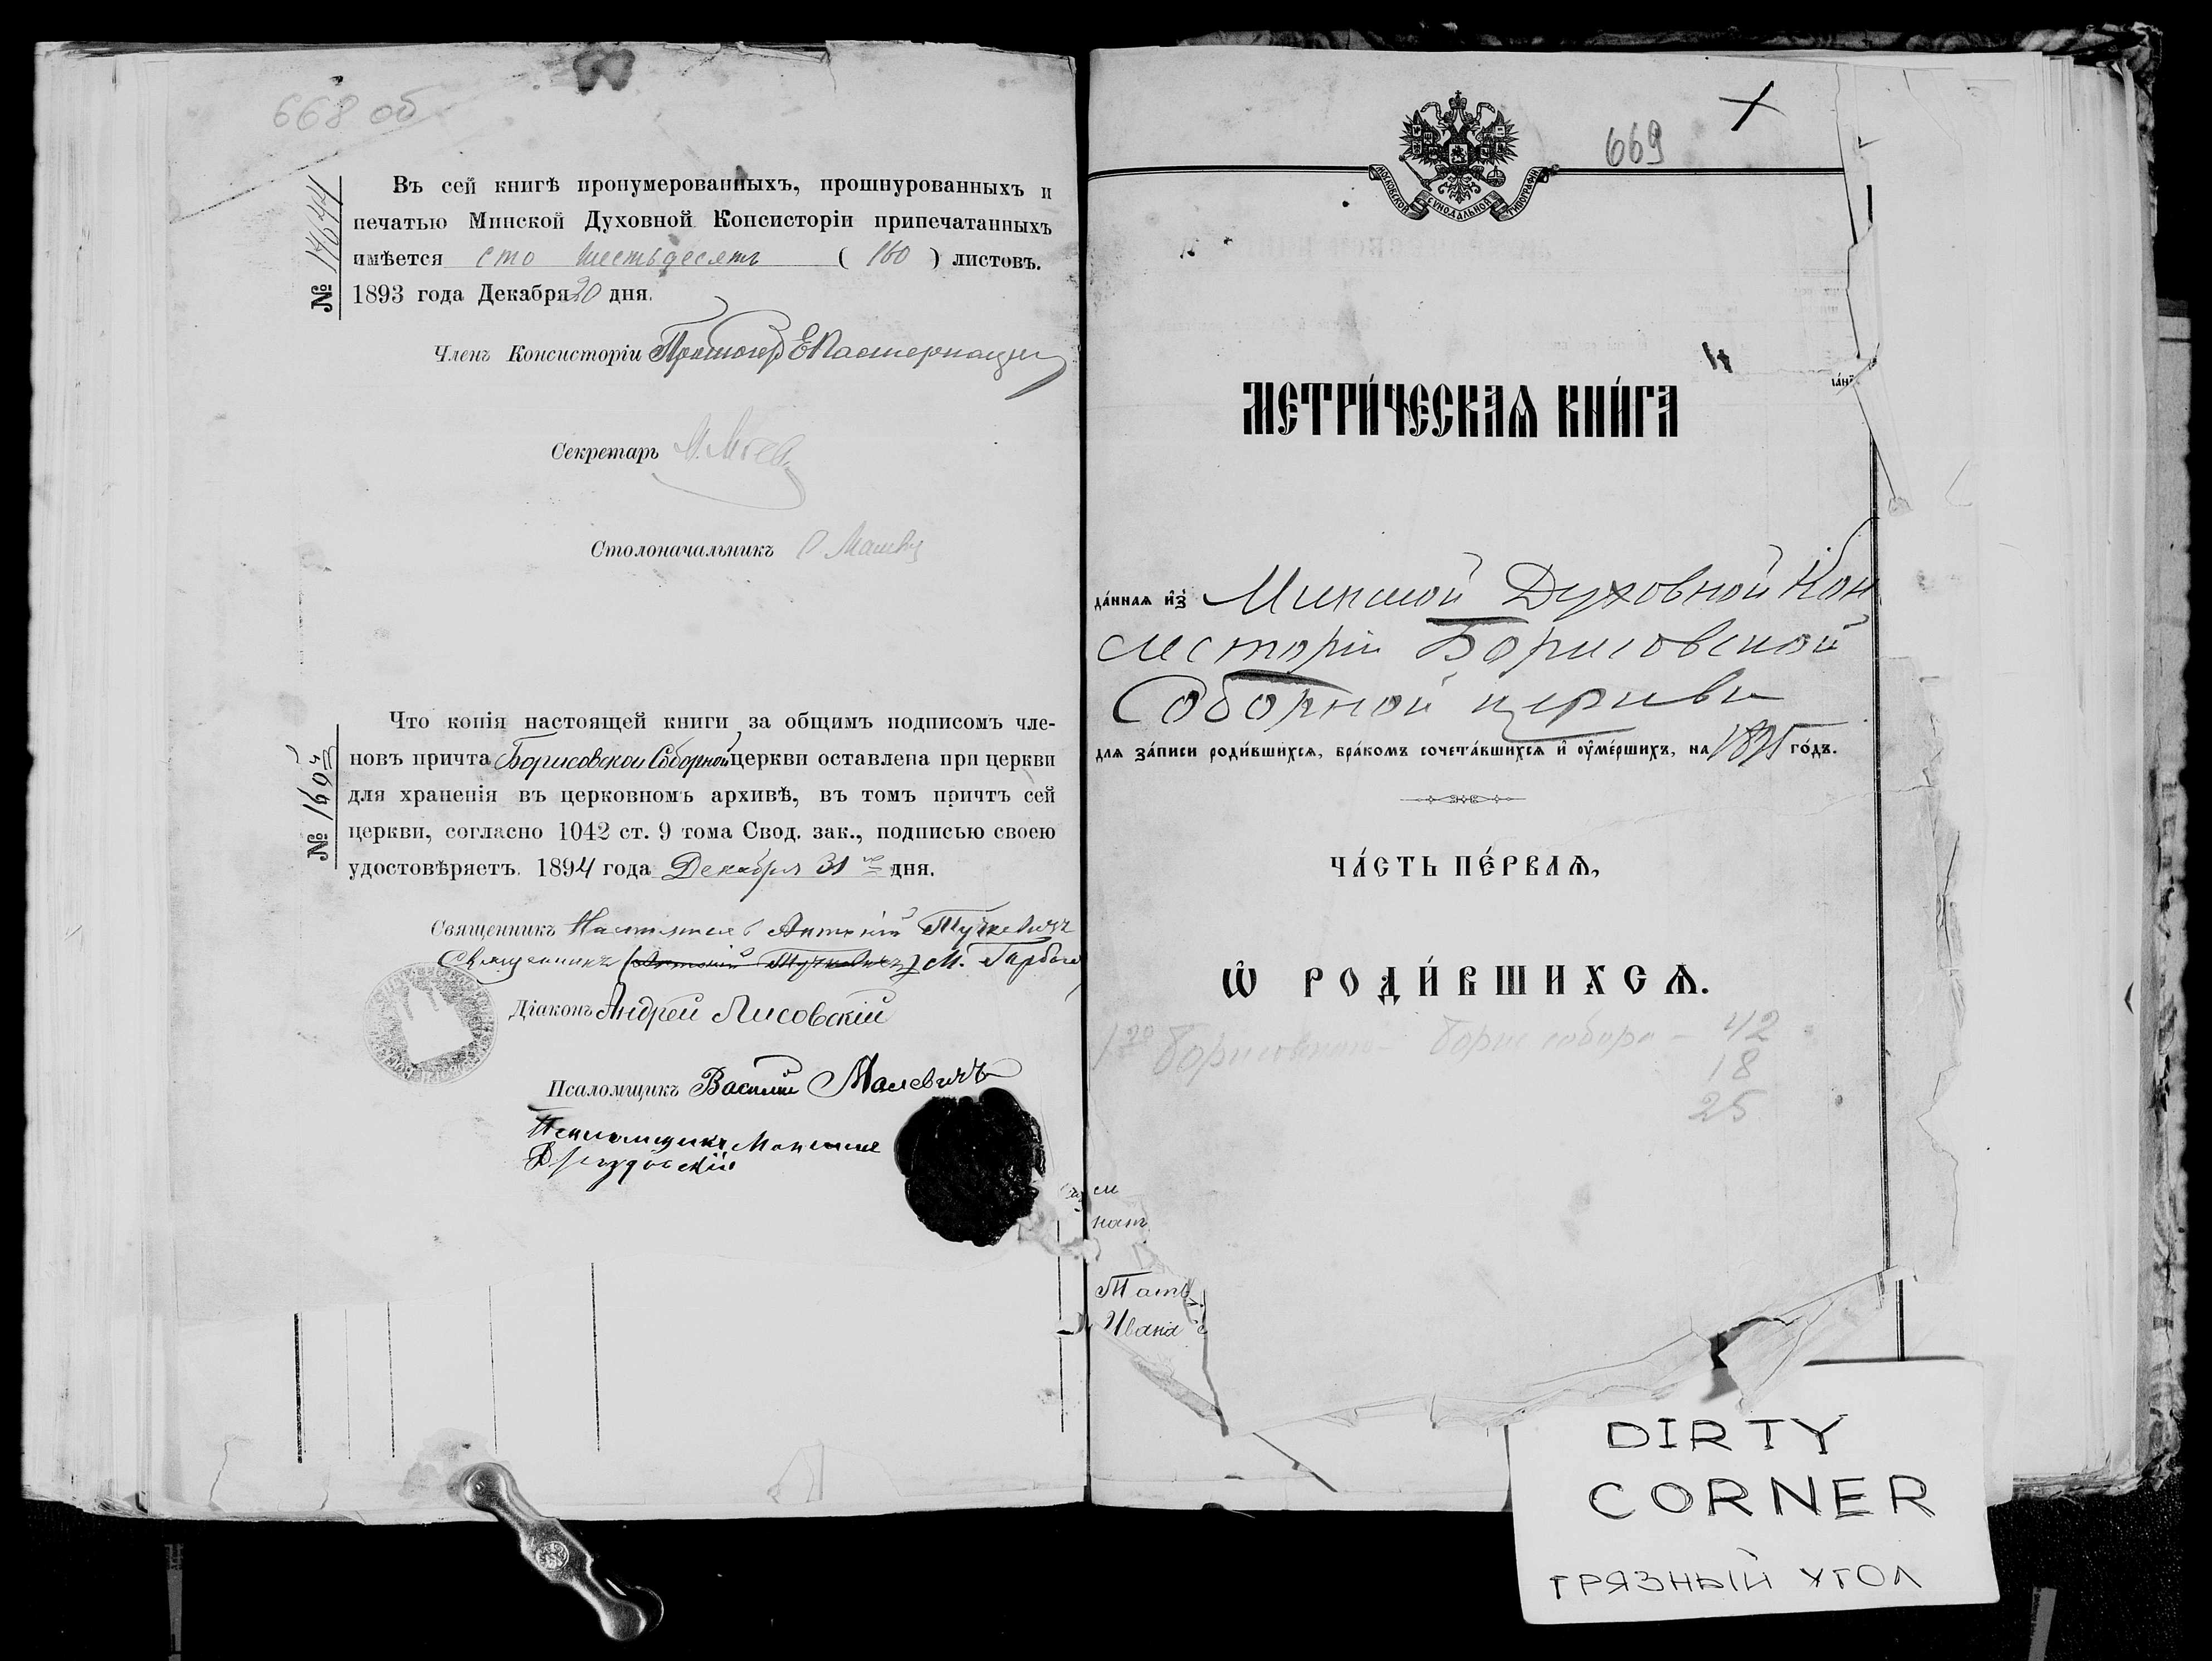 668 об
Въ сей книгѣ пронумерованныхъ, прошнурованныхъ и
печатью Минской Духовной Консисторіи припечатанныхъ
имѣется сто шестьдесятъ ( 160 ) листовъ.
1893 года Декабря 20 дня.
№ 17644
Членъ Консисторіи
Секретарь
Столоначальникъ
Что копія настоящей книги за общимъ подписомъ чле-
новъ причта Борисовской Соборной церкви оставлена при церкви
для храненія въ церковномъ архивѣ, въ томъ причтъ сей
церкви, согласно 1042 ст. 9 тома Свод. зак., подписью своею
удостовѣряетъ. 1894 года Декабря 31 дня.
№
Священникъ Антоній Тучкевичъ
Священникъ М.
Діаконъ Андрей Лисовскій
Псаломщикъ Василій Малевичъ
Псаломщикъ
669
МОСКОВСКОЙ СѴНОДАЛЬНОЙ ТИПОГРАФІИ
МЕТРИ́ЧЕСКАѦ КНИ́ГА
да́ннаѧ и҆з̾ Минской Духовной Кон
систоріи Борисовской
Соборной церкви
длѧ за́писи роди́вшихсѧ, бра́комъ сочета́вшихсѧ и҆ ᲂу҆ме́ршихъ, на 1895 го́дъ.
ЧА́СТЬ ПЕ́РВАѦ,
Ѡ҆ РОДИ́ВШИХСѦ.
42
18
25
см
нат
Тать
Ивана
DIRTY
CORNER
ГРЯЗНЫЙ УГОЛ